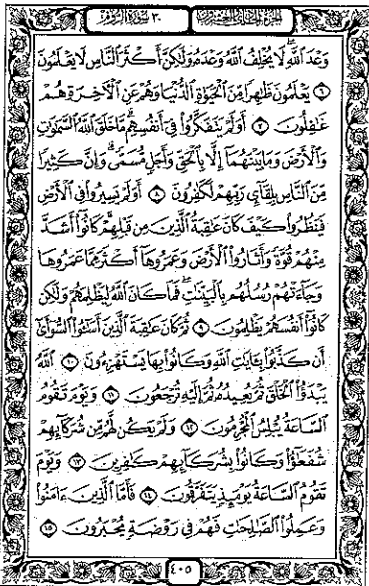 الجزء الحادي والعشرون ٣٠ سورة الروم
وَعْدَ ٱللَّهِ لَا يُخْلِفُ ٱللَّهُ وَعْدَهُۥ وَلَٰكِنَّ أَكْثَرَ ٱلنَّاسِ لَا يَعْلَمُونَ
٦ يَعْلَمُونَ ظَٰهِرًا مِّنَ ٱلْحَيَوٰةِ ٱلدُّنْيَا وَهُمْ عَنِ ٱلْأَخِرَةِ هُمْ
غَٰفِلُونَ ٧ أَوَلَمْ يَتَفَكَّرُوا۟ فِىٓ أَنفُسِهِم مَّا خَلَقَ ٱللَّهُ ٱلسَّمَٰوَٰتِ
وَٱلْأَرْضَ وَمَا بَيْنَهُمَآ إِلَّا بِٱلْحَقِّ وَأَجَلٍ مُّسَمًّى وَإِنَّ كَثِيرًا
مِّنَ ٱلنَّاسِ بِلِقَآئِ رَبِّهِمْ لَكَٰفِرُونَ ٨ أَوَلَمْ يَسِيرُوا۟ فِى ٱلْأَرْضِ
فَيَنظُرُوا۟ كَيْفَ كَانَ عَٰقِبَةُ ٱلَّذِينَ مِن قَبْلِهِمْ كَانُوٓا۟ أَشَدَّ
مِنْهُمْ قُوَّةً وَأَثَارُوا۟ ٱلْأَرْضَ وَعَمَرُوهَآ أَكْثَرَ مِمَّا عَمَرُوهَا
وَجَآءَتْهُمْ رُسُلُهُم بِٱلْبَيِّنَٰتِ فَمَا كَانَ ٱللَّهُ لِيَظْلِمَهُمْ وَلَٰكِن
كَانُوٓا۟ أَنفُسَهُمْ يَظْلِمُونَ ٩ ثُمَّ كَانَ عَٰقِبَةَ ٱلَّذِينَ أَسَٰٓـُٔوا۟ ٱلسُّوٓأَىٰٓ
أَن كَذَّبُوا۟ بِـَٔايَٰتِ ٱللَّهِ وَكَانُوا۟ بِهَا يَسْتَهْزِءُونَ ١٠ ٱللَّهُ
يَبْدَؤُا۟ ٱلْخَلْقَ ثُمَّ يُعِيدُهُۥ ثُمَّ إِلَيْهِ تُرْجَعُونَ ١١ وَيَوْمَ تَقُومُ
ٱلسَّاعَةُ يُبْلِسُ ٱلْمُجْرِمُونَ ١٢ وَلَمْ يَكُن لَّهُم مِّن شُرَكَآئِهِمْ
شُفَعَٰٓؤُا۟ وَكَانُوا۟ بِشُرَكَآئِهِمْ كَٰفِرِينَ ١٣ وَيَوْمَ
تَقُومُ ٱلسَّاعَةُ يَوْمَئِذٍ يَتَفَرَّقُونَ ١٤ فَأَمَّا ٱلَّذِينَ ءَامَنُوا۟
وَعَمِلُوا۟ ٱلصَّٰلِحَٰتِ فَهُمْ فِى رَوْضَةٍ يُحْبَرُونَ ١٥
٤٠٥